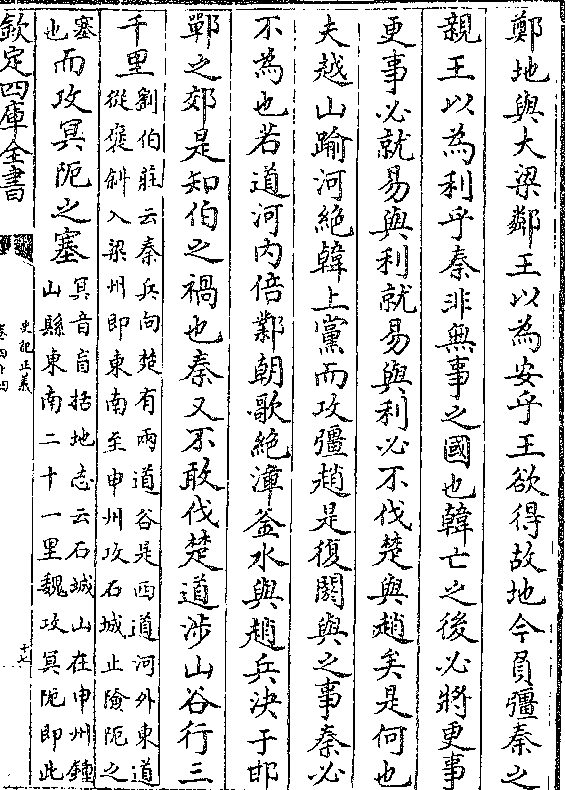 鄭地與大梁鄰王以為安乎王欲得故地今負彊秦之
親王以為利乎秦非無事之國也韓亡之後必將更事
更事必就易與利就易與利必不伐楚與趙矣是何也
夫越山踰河絶韓上黨而攻彊趙是復閼與之事秦必
不為也若道河内倍鄴朝歌絶漳釡水與趙兵決于邯
鄲之郊是知伯之禍也秦又不敢伐楚道渉山谷行三
千里
劉伯莊云秦兵向楚有兩道谷是西道河外東道
從褒斜入梁州即東南至申州攻石城山險阨之
塞
也
而攻冥阨之塞
冥音盲括地志云石城山在申州鍾
山縣東南二十一里魏攻冥阨即此
欽定四庫全書
史記正義
卷四十四
十七